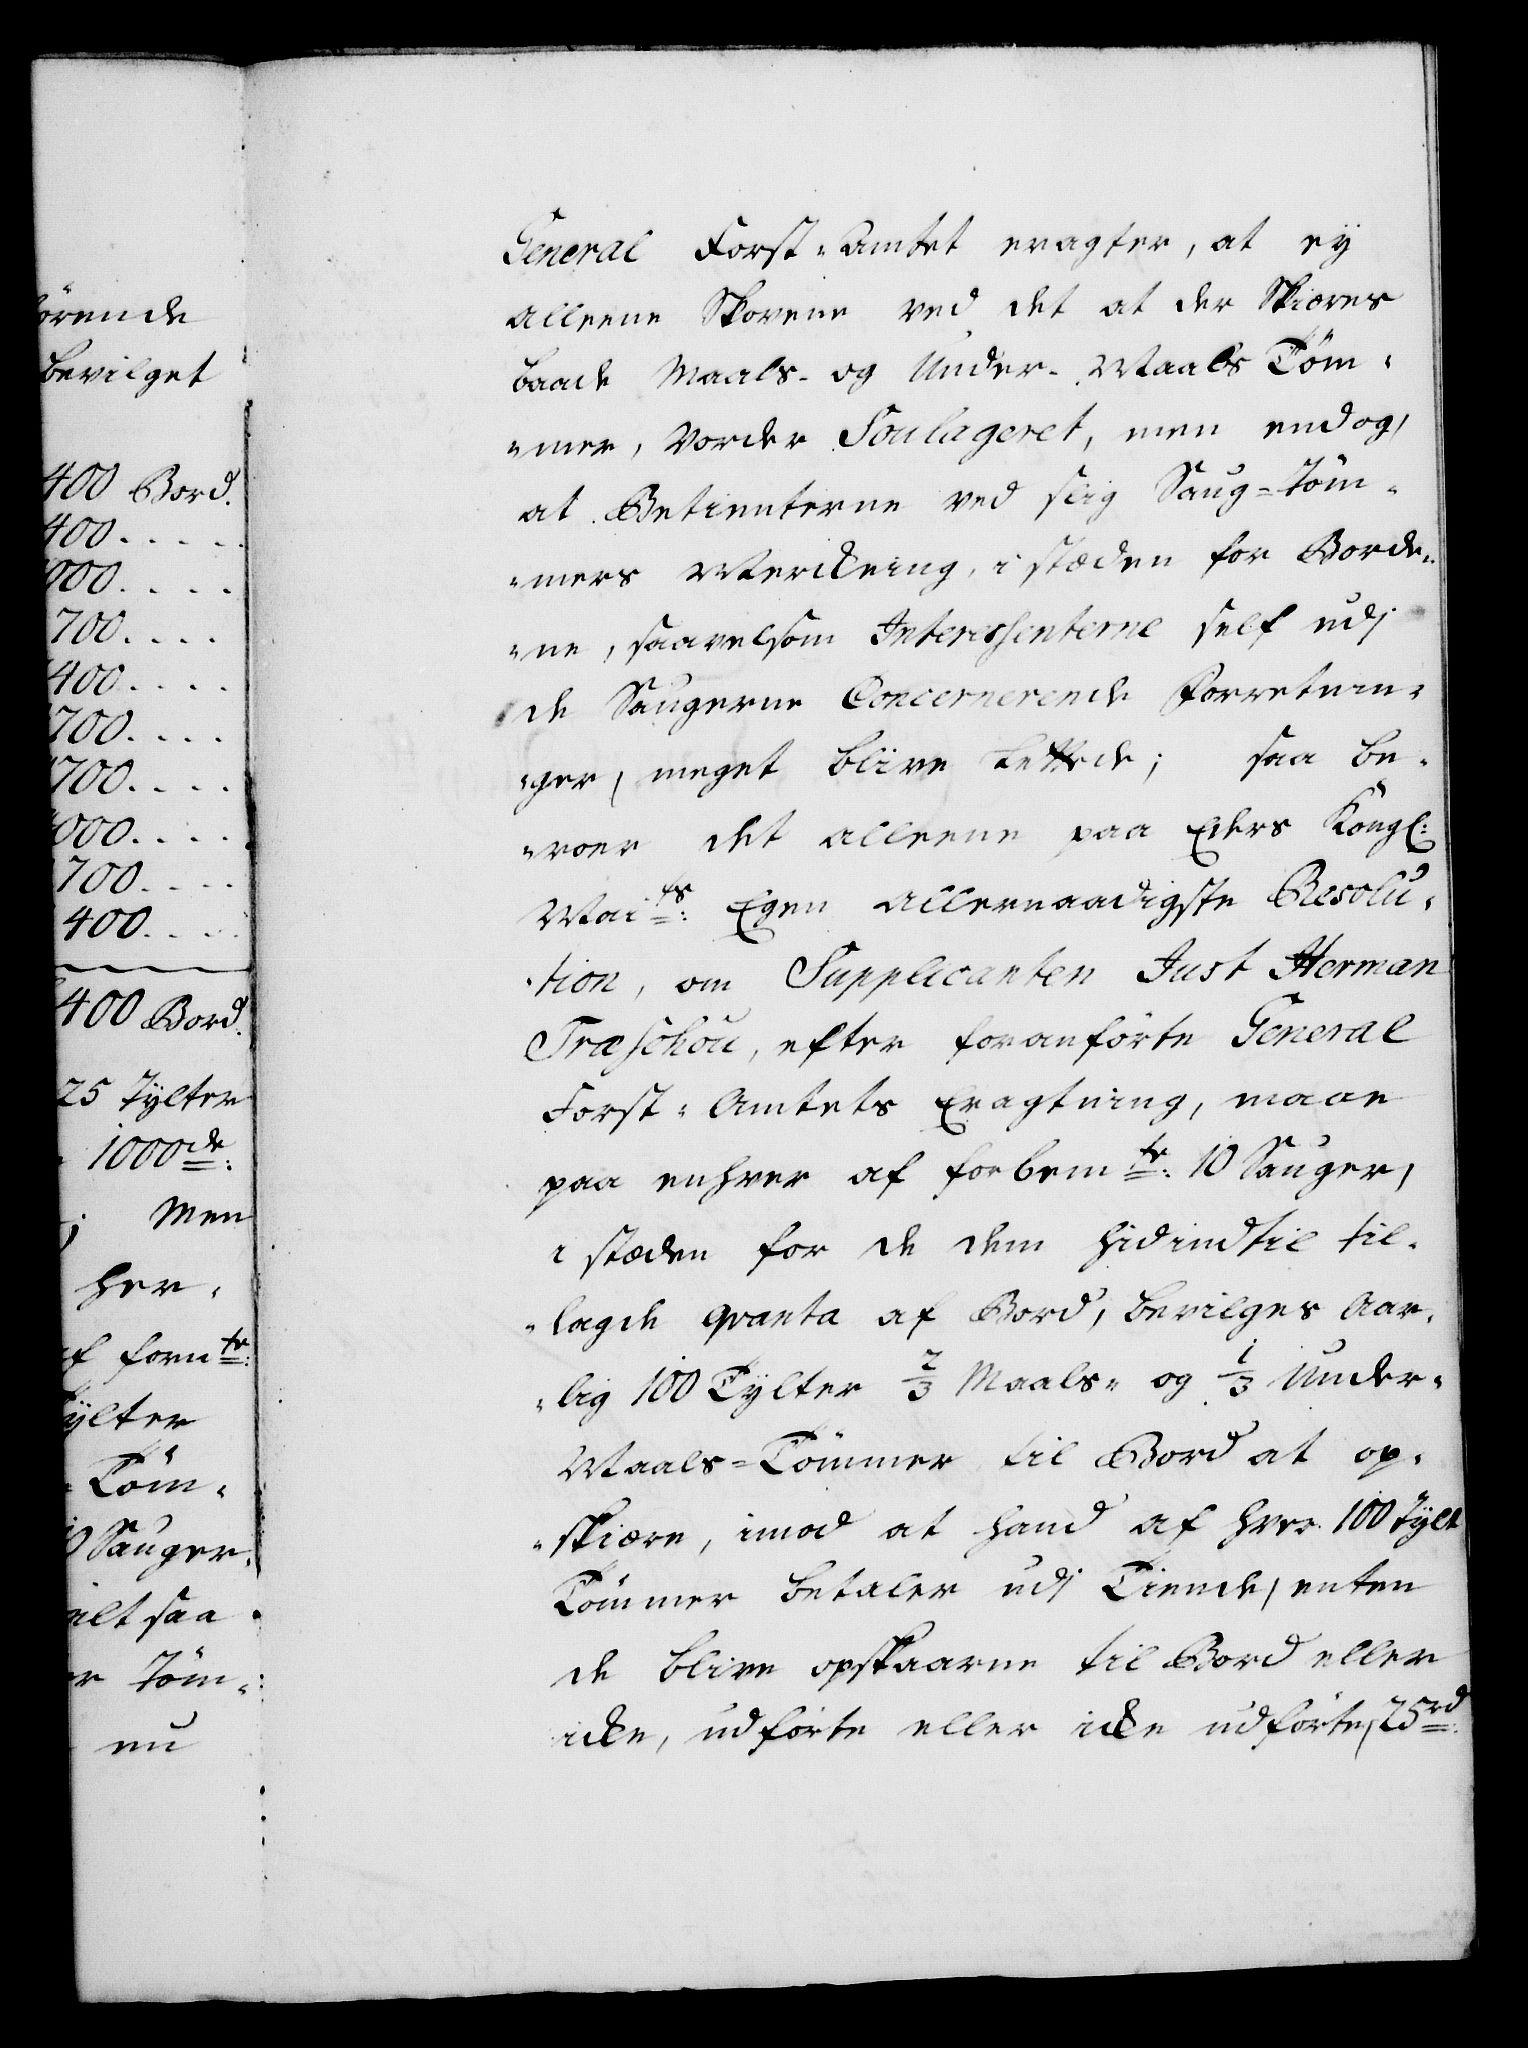 örende
bevilget
400 Bord.
400. . . . .
000. . . .
700. . . .
400. . . .
700. . . .
700. . . .
000. . . .
700. . . .
400. . . .
400 Bord.
25 Tylter
1000de:
; Men
her-
af forn te:
Tylter
= Töm-
10 Sauger.
alt saa
er Töm-
nu
General Forst-Amtet eragter, at ey
alleene Skovene ved det at der Skiæres
baade Maals- og Under-Maals Töm-
-mer, vorder Soulageret, men endog,
at Betienterne ved slig Saug-Töm-
-mers Merckning, i stæden for Borde-
-ne, saavelsom Interessenterne self udj
de Saugerne Concernerende Forretnin-
-ger, meget blive lettede; saa be-
-roer det alleene paa Eders Kongl:
Mai ts: Egen allernaadigste Resolu-
-tion, om Supplicanten Just Herman
Træschou, efter foranförte General
Forst-Amtets Eragtning, maae
paa enhver af forbem te: 10 Sauger,
i stæden for de dem hidindtil til-
-lagde qvanta af Bord, bevilges Aar-
-lig 100 Tylter 2/3 Maals- og 1/3 Under-
Maals-Tömmer til Bord at op-
-skiære, imod at hand af hver 100 Tylt
Tömmer betaler udj Tiende, enten
de blive opskaarne til Bord eller
icke, udförte eller icke udförte, 25 rd: